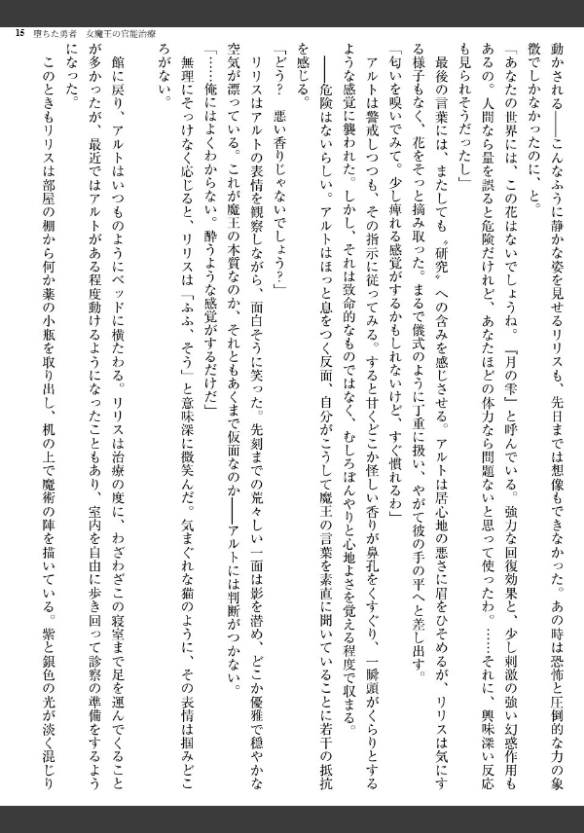 15　堕ちた勇者　女魔王の官能治療
動かされる――こんなふうに静かな姿を見せるリリスも、先日までは想像もできなかった。あの時は恐怖と圧倒的な力の象
徴でしかなかったのに、と。
「あなたの世界には、この花はないでしょうね。『月の雫』と呼んでいる。強力な回復効果と、少し刺激の強い幻惑作用も
あるの。人間なら量を誤ると危険だけれど、あなたほどの体力なら問題ないと思って使ったわ。……それに、興味深い反応
も見られそうだったし」
最後の言葉には、またしても〝研究〟への含みを感じさせる。アルトは居心地の悪さに眉をひそめるが、リリスは気にす
る様子もなく、花をそっと摘み取った。まるで儀式のように丁重に扱い、やがて彼の手の平へと差し出す。
「匂いを嗅いでみて。少し痺れる感覚がするかもしれないけど、すぐ慣れるわ」
アルトは警戒しつつも、その指示に従ってみる。すると甘くどこか怪しい香りが鼻孔をくすぐり、一瞬頭がくらりとする
ような感覚に襲われた。しかし、それは致命的なものではなく、むしろぼんやりと心地よさを覚える程度で収まる。
――危険はないらしい。アルトはほっと息をつく反面、自分がこうして魔王の言葉を素直に聞いていることに若干の抵抗
を感じる。
「どう？　悪い香りじゃないでしょう？」
リリスはアルトの表情を観察しながら、面白そうに笑った。先刻までの荒々しい一面は影を潜め、どこか優雅で穏やかな
空気が漂っている。これが魔王の本質なのか、それともあくまで仮面なのか――アルトには判断がつかない。
「……俺にはよくわからない。酔うような感覚がするだけだ」
無理にそっけなく応じると、リリスは「ふふ、そう」と意味深に微笑んだ。気まぐれな猫のように、その表情は掴みどこ
ろがない。
館に戻り、アルトはいつものようにベッドに横たわる。リリスは治療の度に、わざわざこの寝室まで足を運んでくること
が多かったが、最近ではアルトがある程度動けるようになったこともあり、室内を自由に歩き回って診察の準備をするよう
になった。
このときもリリスは部屋の棚から何か薬の小瓶を取り出し、机の上で魔術の陣を描いている。紫と銀色の光が淡く混じり